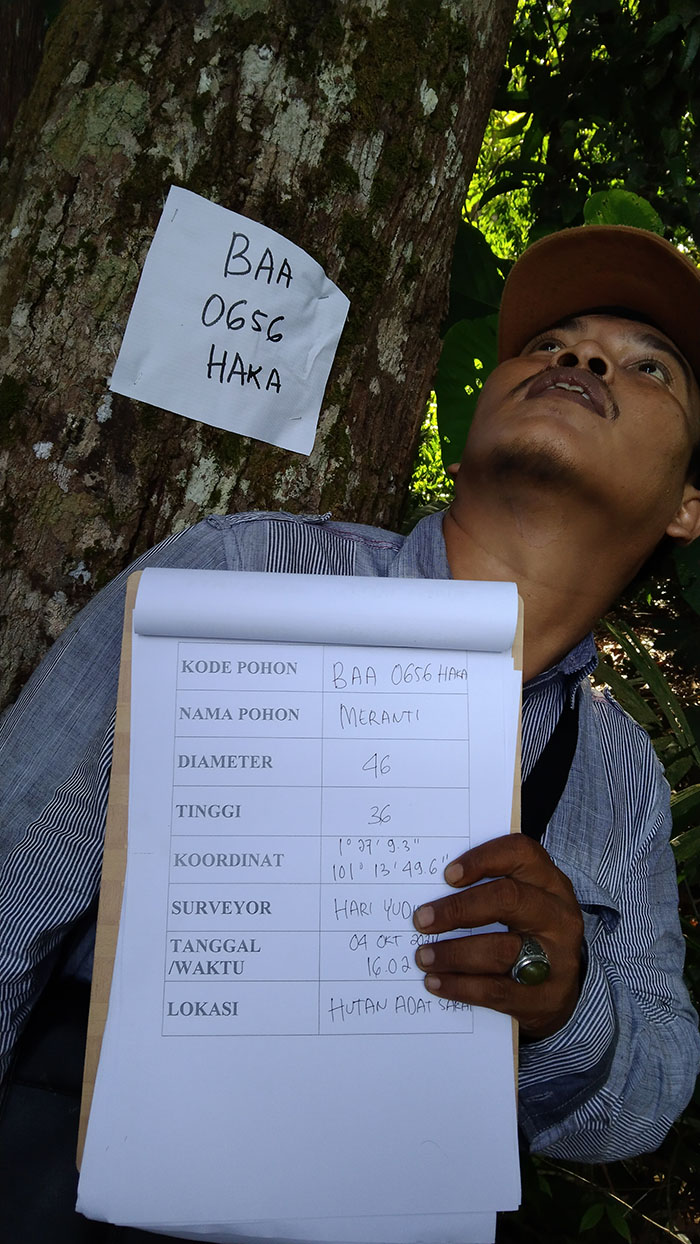 BAA
0656
HAKA
KODE POHON BAA 0656 HAKA
NAMA POHON MERANTI
DIAMETER 46
TINGGI 36
KOORDINAT 1° 27' 9.3"
101° 13' 49.6"
SURVEYOR HARI
TANGGAL 04 OKT
/WAKTU 16.02
LOKASI HUTAN ADAT